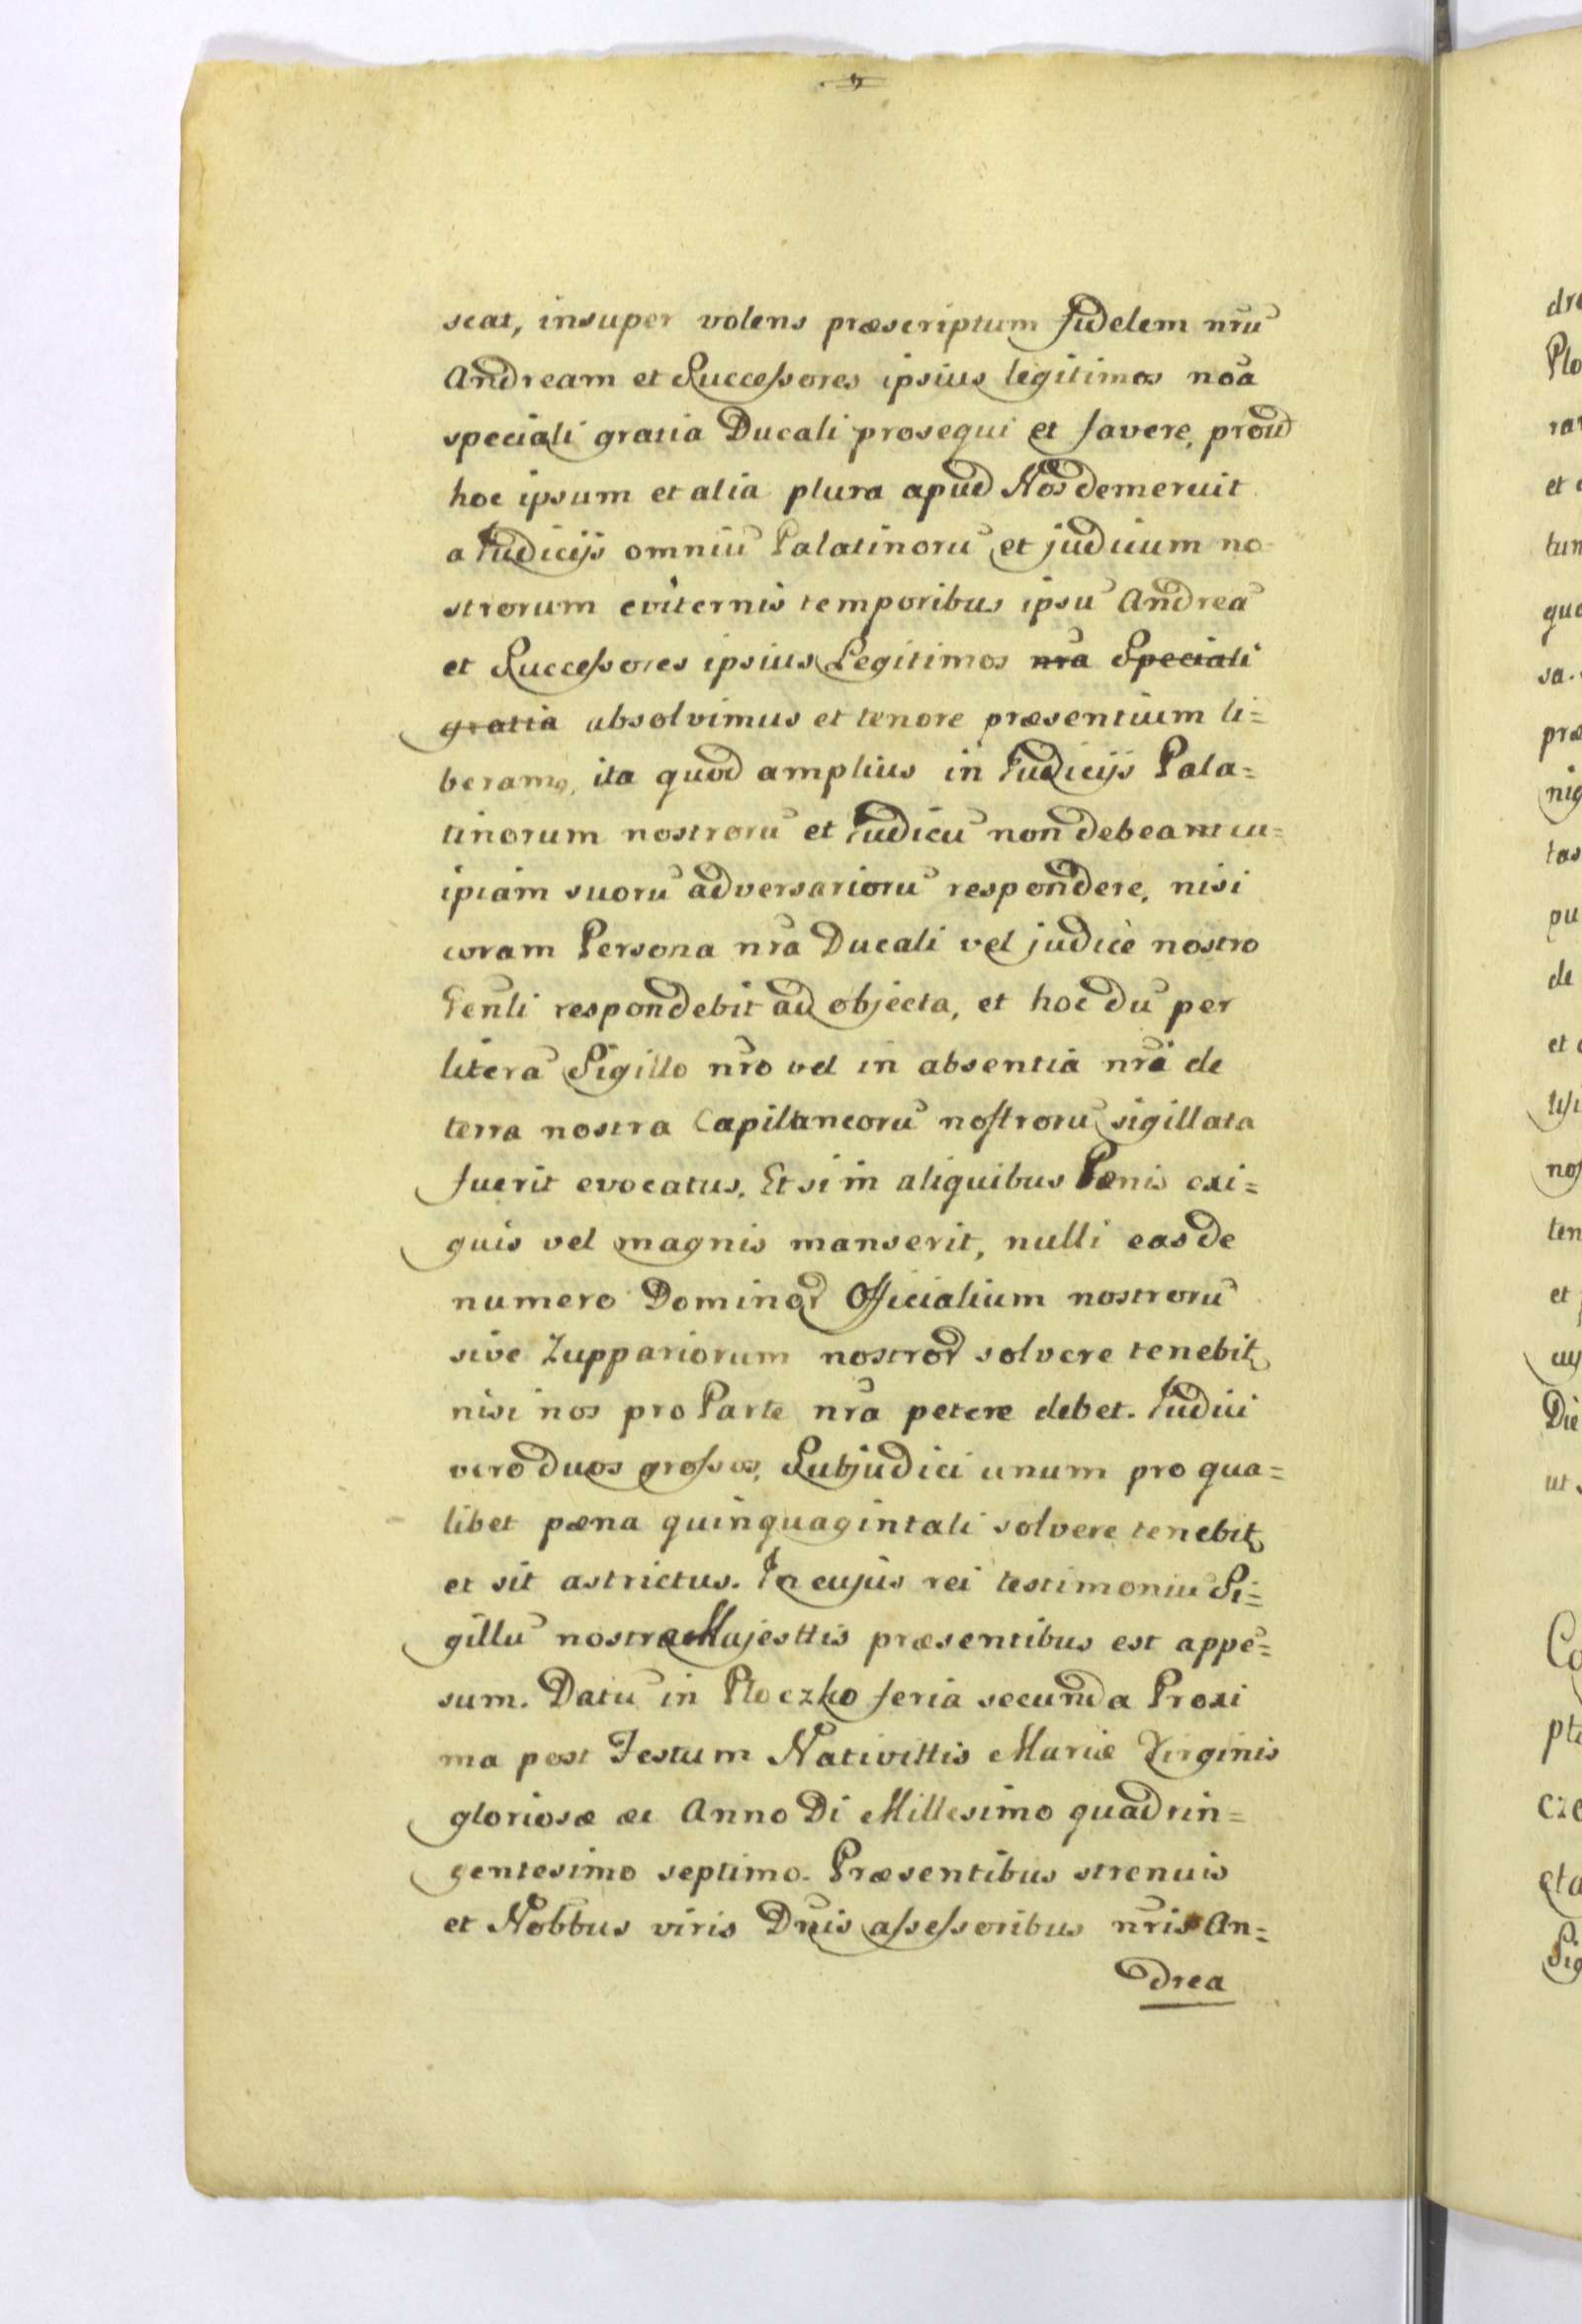 scat, insuper volens præscriptum fidelem nrū
Andream et Successores ipsius legitimos noa
speciali gratia Ducali prosequi et favere, proud
hoc ipsum et alia plura apud Nos demeruit
a Judicijs omniū Palatinorū et judicum no-
strorum eviternis temporibus ipsū Andreā
et Successores ipsius Legitimos nra Speciali
gratia absolvimus et tenore præsentium li=
beramq, ita quod amplius in Judicijs Pala=
tinorum nostrorū et Judicū non debeant cu=
ipiam suorū adversariorū respondere, nisi
coram Persona nra Ducali vel judice nostro
Genli respondebit ad objecta, et hoc dū per
literā Sigillo nro vel in absentia nra de
terra nostra Capitaneorū nostrorū sigillata
fuerit evocatus. Et si in aliquibus Pænis exi=
guis vel magnis manserit, nulli eas de
numero Dominor Officialium nostrorū
sive Zuppariorum nostror solvere tenebit
nisi nos pro Parte nra petere debet. Judici
vero duos grossos, Subjudici unum pro qua=
libet pæna quinquagintali solvere tenebit
et sit astrictus. In cujus rei testimoniū Si=
gillū nostræ Majesttis præsentibus est appē=
sum. Datū in Ploczko feria secunda Proxi
ma post Festum Nativittis Mariæ Virginis
gloriosæ ac Anno Di Millesimo quadrin=
gentesimo septimo. Præsentibus strenuis
et Nobbus viris Dnis assessoribus nris An=
drea